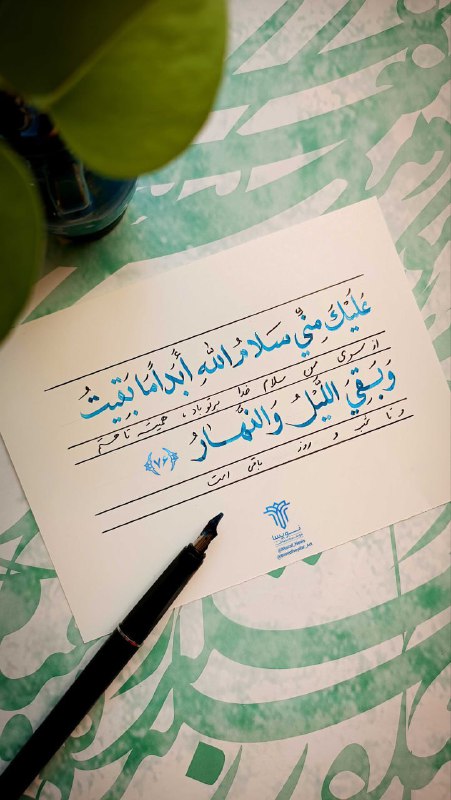 عَلَيْكَ مِنّي سَلامُ اللهِ أَبَداً مَا بَقيتُ
از سوی من سلام خدا بر تو باد، همیشه تا هستم
وَ بَقِيَ اللَّيْلُ وَ النَّهارُ ﴿۷۶﴾
و تا شب و روز باقی است